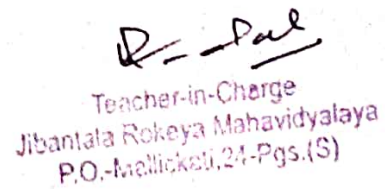 Teacher-in-Charge
Jibantala Rokeya Mahavidyalaya
P.O.-Mallickati,24-Pgs.(S)